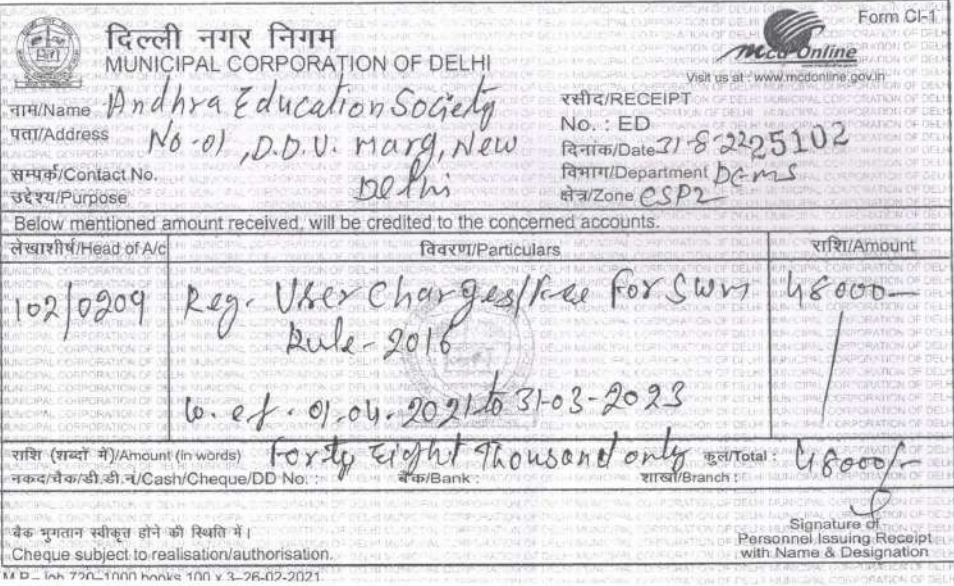 Form CI-1
दिल्ली नगर निगम
MUNICIPAL CORPORATION OF DELHI
mcd Online
Visit us at : www.mcdonline.gov.in
नाम/Name Andhra Education Society
पता/Address No-01, D.D.U. Marg, New
Delhi
सम्पर्क/Contact No.
उद्देश्य/Purpose
रसीद/RECEIPT
No. : ED 25102
दिनांक/Date 31-8-22
विभाग/Department DEMS
क्षेत्र/Zone CSPZ
Below mentioned amount received, will be credited to the concerned accounts.
लेखाशीर्ष/Head of A/c विवरण/Particulars राशि/Amount
102/0209 Reg. User Charges/Fee For SWM 48000—
Rule-2016
w.e.f. 01-04-2021 to 31-03-2023
राशि (शब्दों में)/Amount (in words) Forty Eight Thousand only कुल/Total : 48000/-
नकद/चैक/डी.डी.नं/Cash/Cheque/DD No. : बैंक/Bank : शाखा/Branch :
बैक भुगतान स्वीकृत होने की स्थिति में।
Cheque subject to realisation/authorisation.
Signature of
Personnel Issuing Receipt
with Name & Designation
M.P.– Job 720–1000 books 100 x 3–26-02-2021